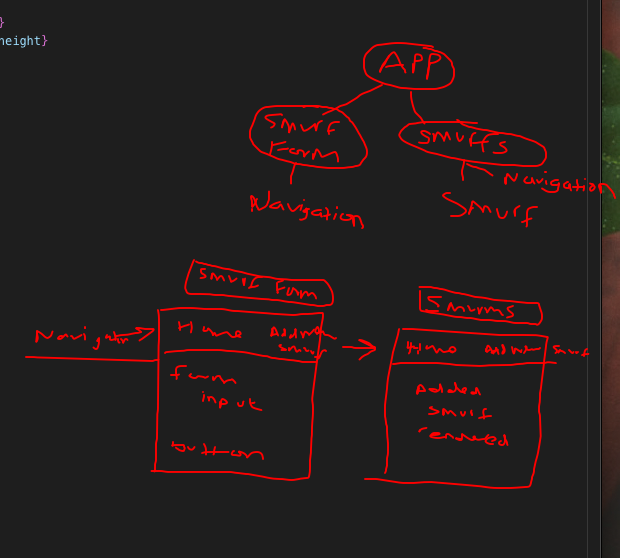 }
height}
APP
Smurf
Form
Smurfs
Navigation
Navigation
Smurf
Smurf Form
Navigation
Home
Smurf
Form
input
button
Home
Smurf
Added
Smurf
rendered